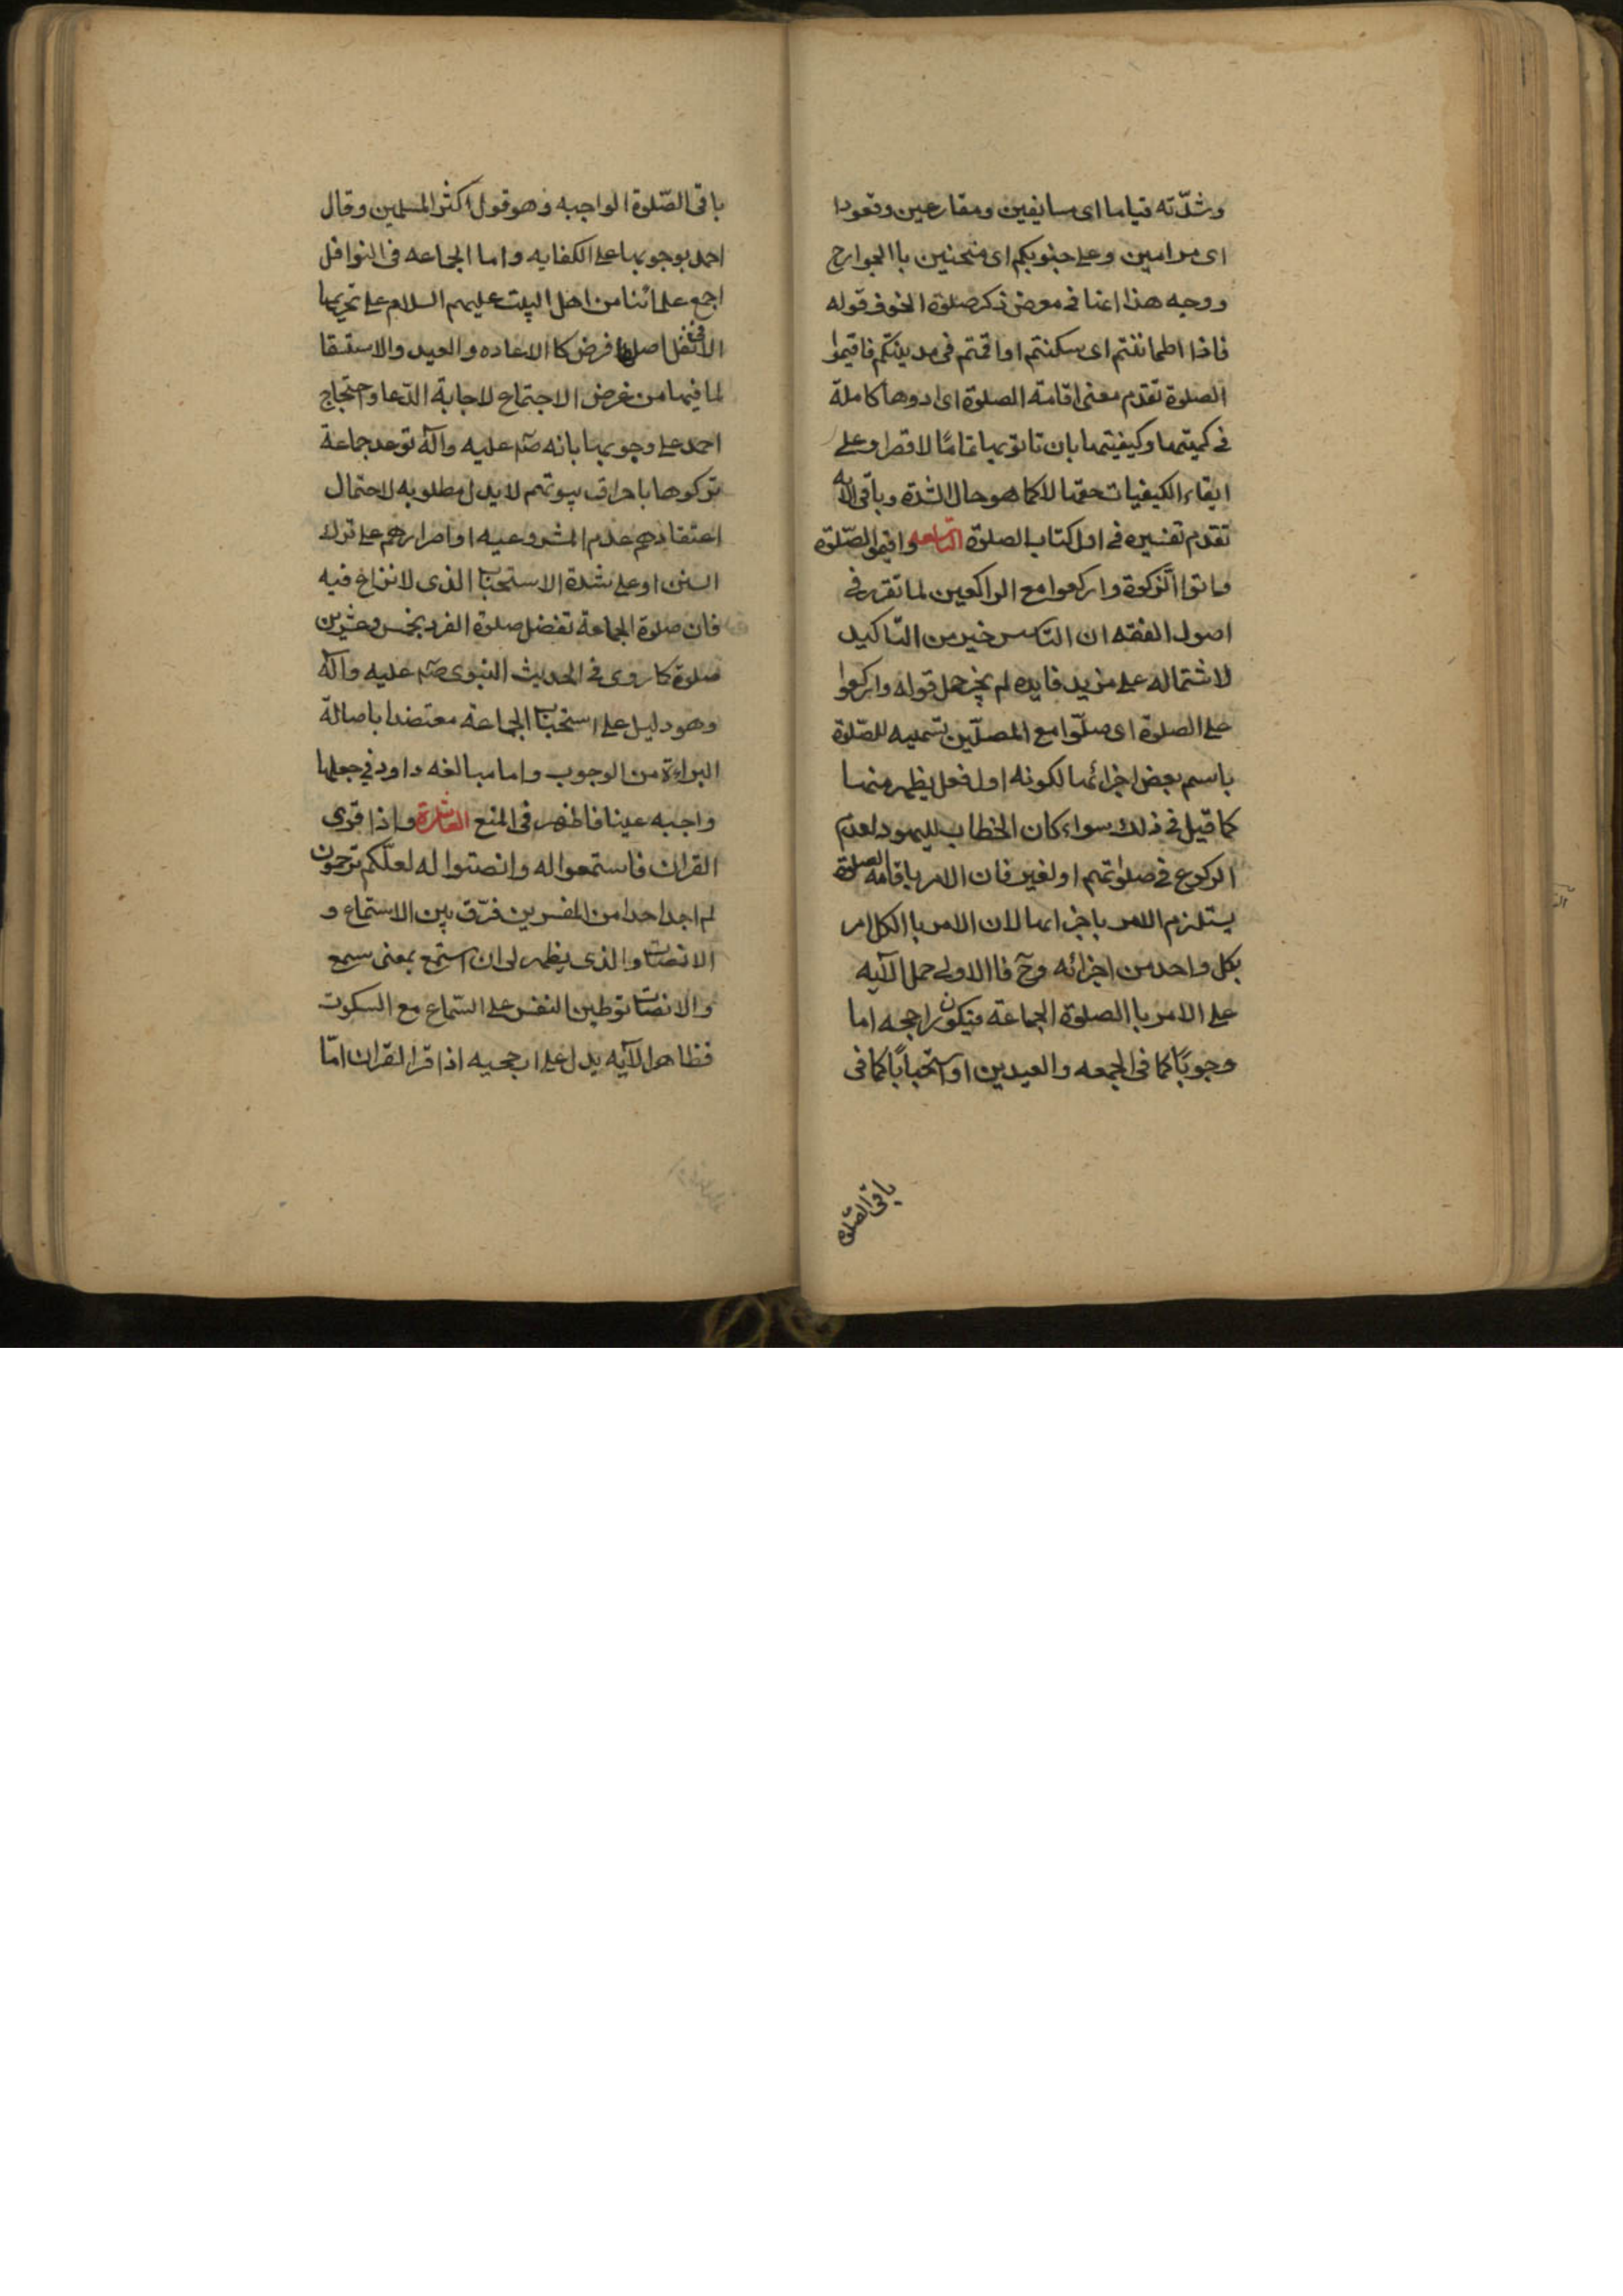 وشدّته قياما اى مسايفين ومقارعين وقعودا
اى مرامين وعلى جنوبكم اى منحنين باالجوارح
ووجه هذا اعنا فى معرض ذكر صلوة الخوف قوله
فاذا اطماننتم اى سكنتم او اقمتم فى مدينتكم فاقيموا
الصلوة تقدم معنى اقامة الصلوة اى ادوها كاملة
فى كميتها وكيفيتها بان تاتو بها تمامًا لا قصرا وعلى
ايقاء الكيفيات حقها لا كما هو حال الشدة وباقى الآيه
تقدم تفسيره فى اول كتاب الصلوة التاسعه واقيموا الصّلوة
واتوا الزّكوة واركعوا مع الراكعين لما تقرر فى
اصول الفقه ان التاسيس خير من التاكيد
لاشتماله على مزيد فايده لم يجز حمل قوله واركعوا
على الصلوة اى صلّوا مع المصلّين تسميه للصّلوة
باسم بعض اجزائها لكونه اول فعل يظهر منها
كما قيل فى ذلك سواء كان الخطاب لليهود لعدم
الركوع فى صلوتهم او لغيرهم فان الامر باقامه الصلوة
يستلزم الامر باجزائها لان الامر باالكل امر
بكل واحد من اجزائه وح فاالاولى حمل الآيه
على الامر باالصلوة الجماعة فيكون راجحه اما
وجوبًا كما فى الجمعه والعيدين او استحبابًا كما فى
باقى الصّلوة
باقى الصّلوة الواجبه وهو قول اكثر المسلمين وقال
احمد بوجوبها على الكفايه واما الجماعه فى النوافل
اجمع علمائنا من اهل البيت عليهم السلام على تحريمها
الا فى نفل اصلها فرض كا الاعاده والعيد والاستسقا
لما فيها من غرض الاجتماع لاجابة الدّعا واحتجاج
احمد على وجوبها بانه صلم عليه وآله توعد جماعة
تركوها باحراق بيوتهم لا يدل مطلوبه لاحتمال
اعتقادهم عدم المشروعيه او اصرارهم على ترك
السنن او على شدة الاستحباب الذى لا نزاع فيه
فان صلوة الجماعة تفضل صلوة الفرد بخمس وعشرين
صلوة كما روى فى الحديث النبوى صلم عليه وآله
وهو دليل على استحباب الجماعة معتضدا باصالة
البراءة من الوجوب واما مبالغه داود فى جعلها
واجبه عينا فاظهر فى المنع العاشرة واذا قرى
القران فاستمعوا له وانصتوا له لعلّكم ترحمون
لم اجد احدا من المفسرين فرّق بين الاستماع و
الانصات والذى يظهر لى ان استمع بمعنى سمع
والانصات توطين النفس على السّماع مع السكوت
فظاهر الآيه يدل على ارجحيه اذا قرا القران امّا